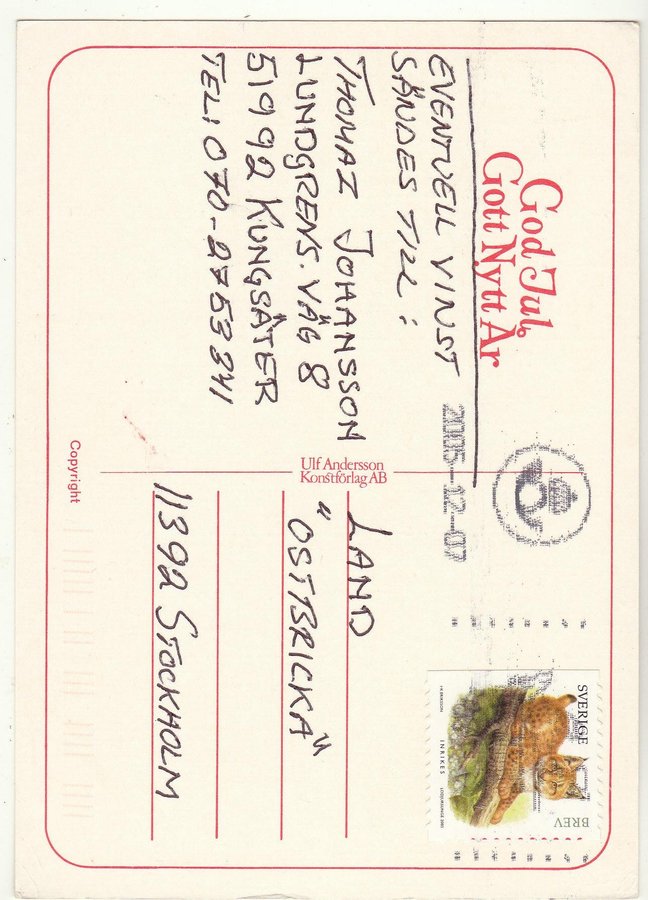 God Jul
Gott Nytt År
EVENTUELL VINST
SÄNDES TILL:
THOMAZ JOHANSSON
LUNDGRENS. VÄG 8
51992 KUNGSÄTER
TEL: 070-2753341
Ulf Andersson
Konstförlag AB
Copyright
2005-12-07
SVERIGE
BREV
INRIKES
LODJURSUNGE 2005
LAND
"OSTBRICKA"
11392 STOCKHOLM